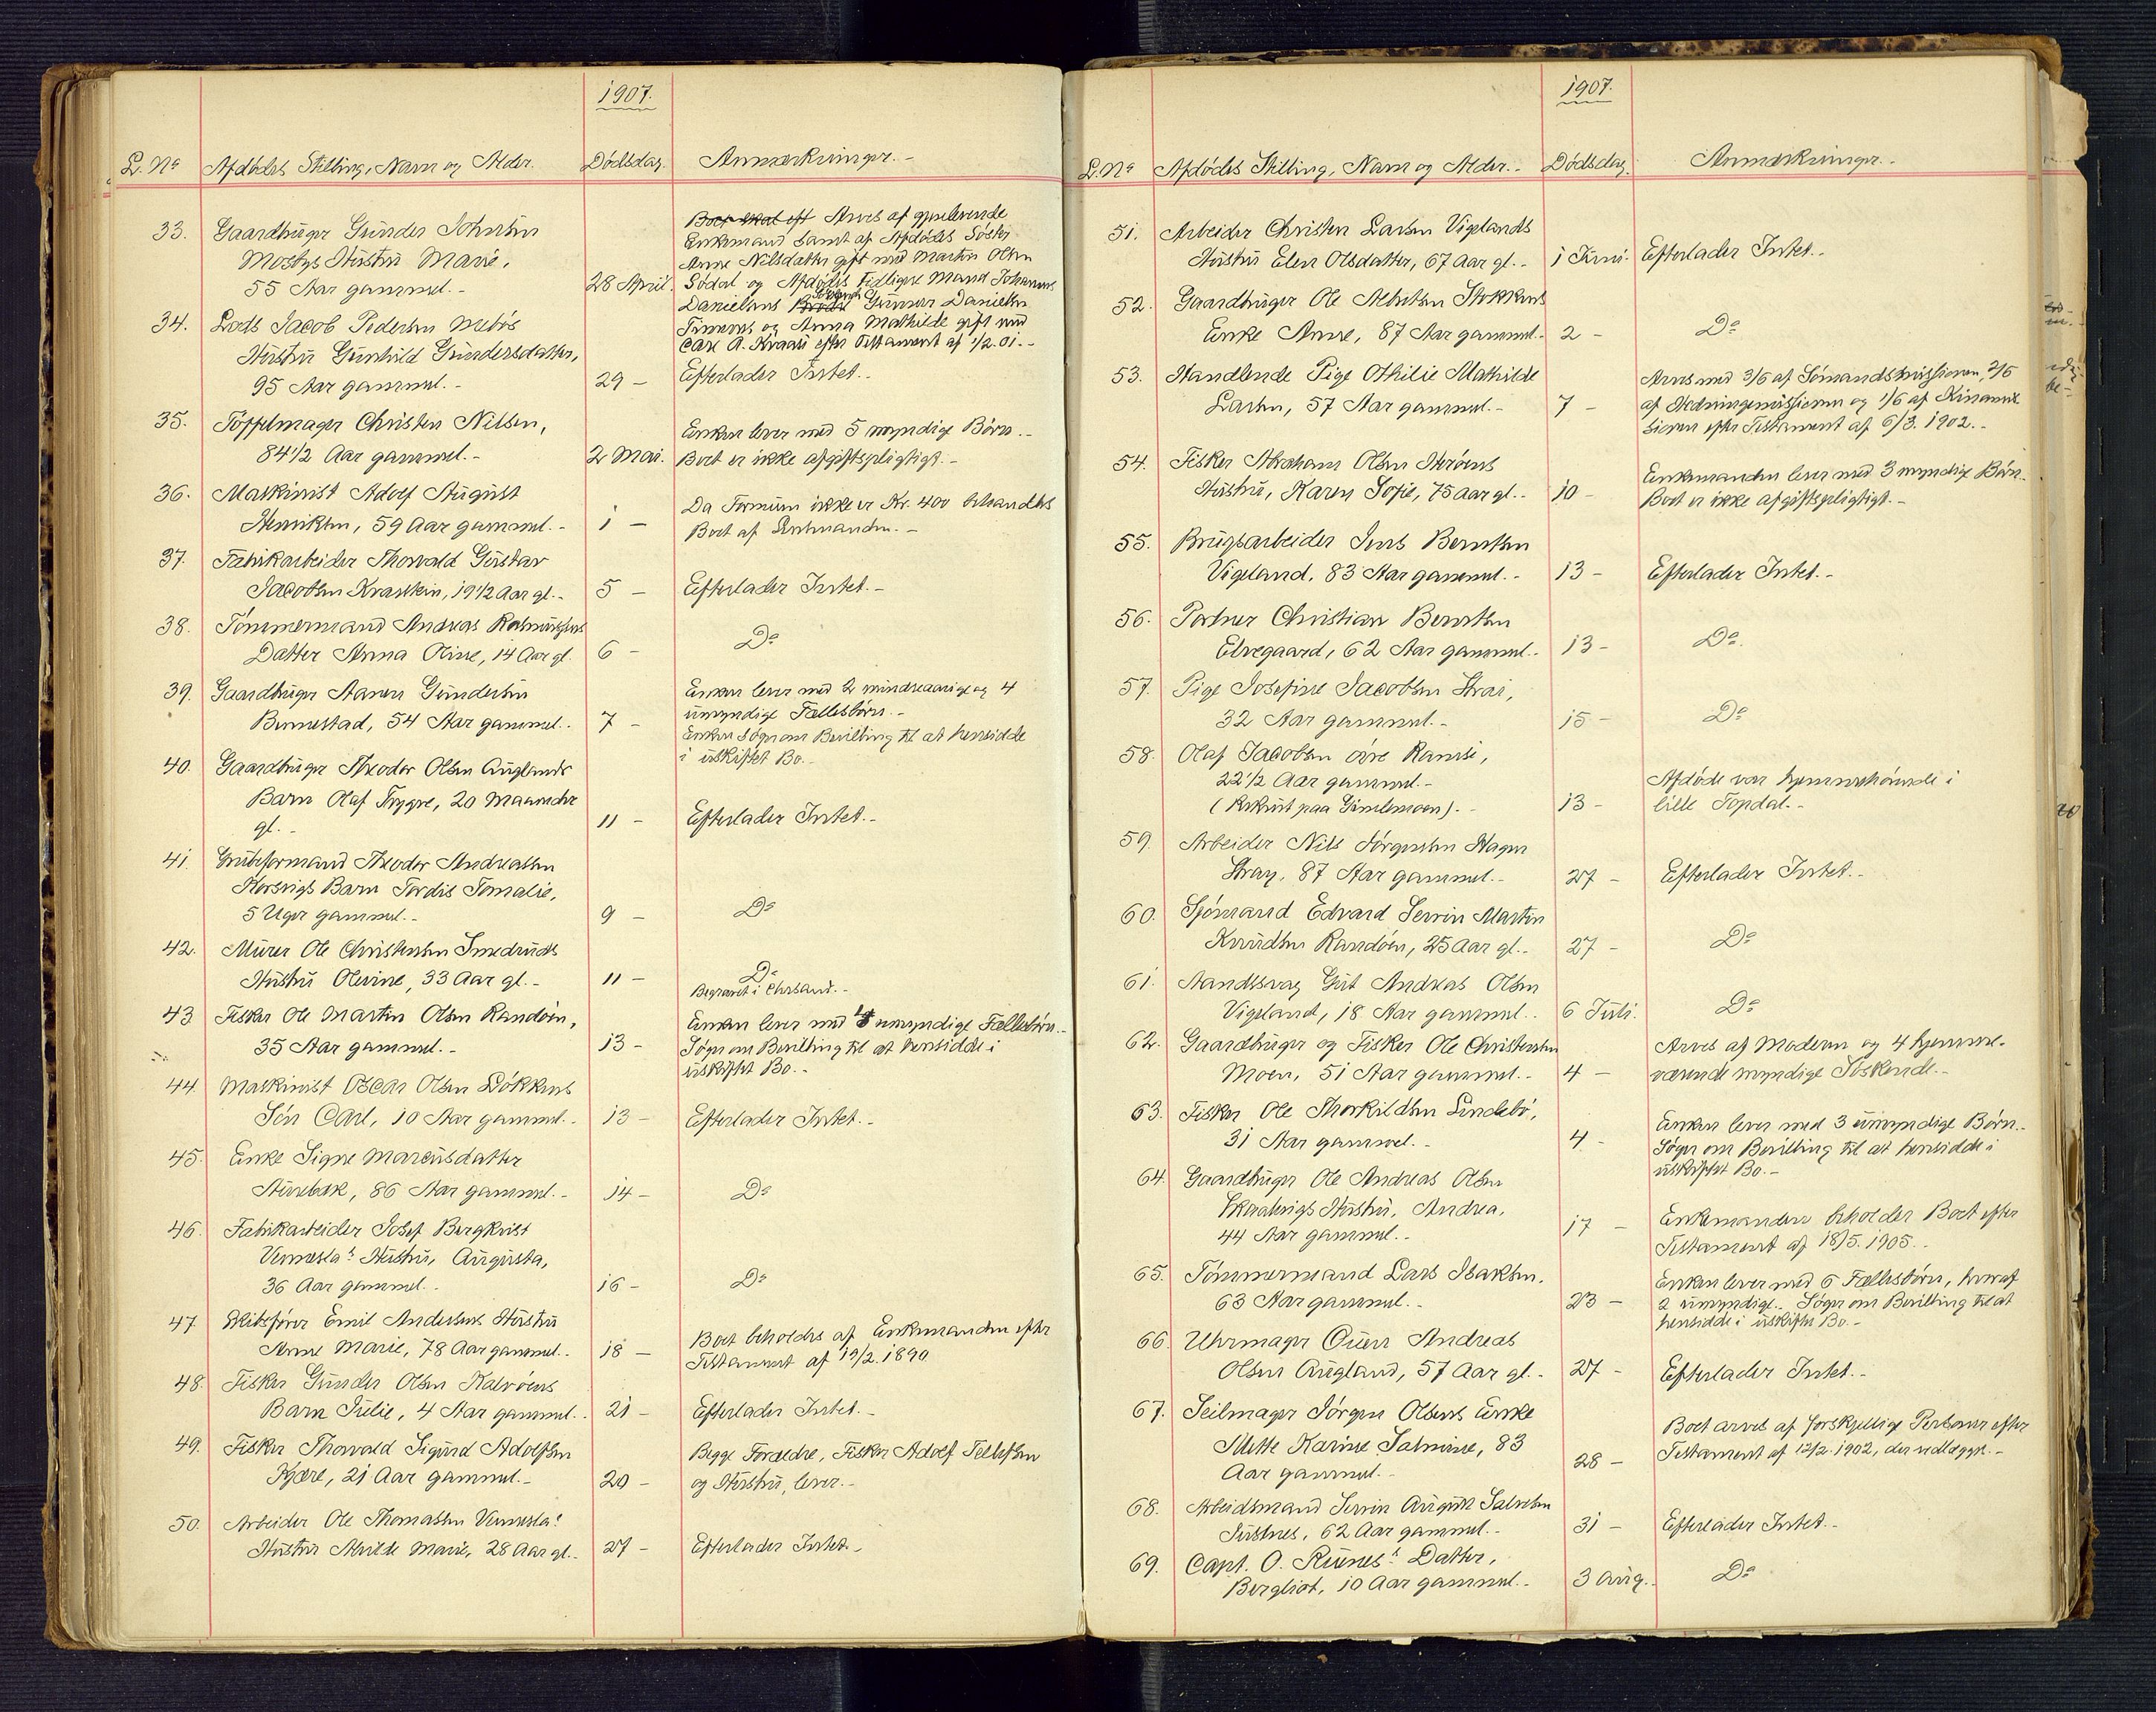 1907.
L. No Afdödes Stilling, Navn og Alder. Dödsdag. Anmærkninger.-
33. Gaardbruger Gunder Johnsen
Mosbys Hustru Marie,
55 Aar gammel.- 28 April.
Boet skal eft Arves af gjenlevende
Enkemand samt af Afdödes Söster
Anne Nilsdatter gift med Martin Olsen
Södal og Afdödes tidligere Mand Johannes
Danielsens Broder Gunnar Danielsen
og Anna Mathilde gift med
Carl A. efter Testament af 1/2. 01.-
34. Lods Jacob Pedersen Mebös
Hustru Gunhild Gundersdatter,
95 Aar gammel.- 29 - Efterlader Intet.-
35. Töffelmager Christen Nilsen,
84 1/2 Aar gammel.- 2 Mai.
Enken lever med 5 myndige Börn.-
Boet er ikke afgiftspligtigt.-
36. Maskinist Adolf August
Henriksen, 59 Aar gammel.- 1 -
Da Formuen ikke er Kr. 400 behandles
Boet af Lensmanden.-
37. Fabrikarbeider Thorvald Gustav
Jacobsen Kravstein, 19 1/2 Aar gl.- 5 - Efterlader Intet.-
38. Tömmermand Andreas Rasmussens
Datter Anna Oline, 14 Aar gl. 6 - Do
39. Gaardbruger Aanen Gundersen
Bumestad, 54 Aar gammel.- 7 -
Enken lever med 2 mindreaarige og 4
umyndige Fællesbörn.-
Enken söger om Bevilling til at hensidde
i uskiftet Bo.-
40. Gaardbruger Theodor Olsen Auglands
Barn Olaf Trygve, 20 Maaneder
gl.- 11 - Efterlader Intet.-
41. Grubeformand Theodor Andreassen
Korsvigs Barn Tordis Tomalie,
5 Uger gammel.- 9 - Do
42. Murer Ole Christensen Smedruds
Hustru Olevine, 33 Aar gl.- 11 - Do
Begravet i Chrsand.-
43. Fisker Ole Martin Olsen Randöen,
35 Aar gammel.- 13 -
Enken lever med 4 umyndige Fællesbörn.-
Söger om Bevilling til at hensidde i
uskiftet Bo.-
44. Maskinist Oscar Olsen Lökkens
Sön Carl, 10 Aar gammel.- 13 - Efterlader Intet.-
45. Enke Signe Marcusdatter
Aurebæk, 86 Aar gammel.- 14 - Do
46. Fabrikarbeider Josef Bergkvist
Vennesla's Hustru, Augusta,
36 Aar gammel.- 16 - Do
47. Skibsförer Emil Andersens Hustru
Anne Marie, 78 Aar gammel.- 18 -
Boet beholdes af Enkemanden efter
Testament af 19/2. 1890
48. Fisker Gunder Olsen Kalvöens
Barn Julie, 4 Aar gammel.- 21 - Efterlader Intet.-
49. Fisker Thorvald Sigurd Adolfsen
Kjære, 21 Aar gammel.- 20 -
Begge Forældre, Fisker Adolf Tellefsen
og Hustru, lever.-
50. Arbeider Ole Thomassen Vennesla's
Hustru Alvilde Marie, 28 Aar gl.- 27 - Efterlader Intet.-
1907.
L. No Afdödes Stilling, Navn og Alder.- Dödsdag. Anmærkninger.-
51. Arbeider Christen Larsen Vigelands
Hustru Elen Olsdatter, 67 Aar gl.- 1 Juni. Efterlader Intet.-
52. Gaardbruger Ole Albertsen Stokkens
Enke Anne, 87 Aar gammel.- 2 - Do
53. Handlende Pige Othilie Mathilde
Larsen, 57 Aar gammel.- 7 -
Arves med 3/6 af Sömandsmissionen, 2/6
af Hedningemissionen og 1/6 af Kinamis-
sionen efter Testament af 6/3. 1902.-
54. Fisker Abraham Olsen Heröens
Hustru, Karen Sofie, 75 Aar gl.- 10 -
Enkemanden lever med 3 myndige Börn.-
Boet er ikke afgiftspligtigt.-
55. Brugsarbeider Jens Berntsen
Vigeland, 83 Aar gammel.- 13 - Efterlader Intet.-
56. Portner Christian Berntsen
Elvegaard, 62 Aar gammel.- 13 - Do.
57. Pige Josefine Jacobsen Strai,
32 Aar gammel.- 15 - Do
58. Olaf Jacobsen övre Ramse,
22 1/2 Aar gammel.-
(Rekrut paa Gimlemoen).- 13 -
Afdöde var hjemmehörende i
lille Topdal.-
59. Arbeider Nils Jörgensen Hagen
Stray, 87 Aar gammel.- 27 - Efterlader Intet.-
60. Sjömand Edvard Severin Martin
Knudsen Randöen, 25 Aar gl.- 27 - Do
61. Aandssvag Gut Andreas Olsen
Vigeland, 18 Aar gammel.- 6 Juli. Do
62. Gaardbruger og Fisker Ole Christensen
Moen, 51 Aar gammel.- 4 -
Arves af Moderen og 4 hjemme-
værende myndige Söskende.-
63. Fisker Ole Thorkildsen Lindebö,
31 Aar gammel.- 4 -
Enken lever med 3 umyndige Börn.-
Söger om Bevilling til at hensidde i
uskiftet Bo.-
64. Gaardbruger Ole Andreas Olsen
Hustru, Andrea,
44 Aar gammel.- 17 -
Enkemanden beholder Boet efter
Testament af 18/5. 1905.-
65. Tömmermand Lars Isaksen.
63 Aar gammel.- 23 -
Enken lever med 6 Fællesbörn, hvoraf
2 umyndige.- Söger om Bevilling til at
hensidde i uskiftet Bo.-
66. Uhrmager Ouen Andreas
Olsen Augland, 57 Aar gl.- 27 - Efterlader Intet.-
67. Seilmager Jörgen Olsens Enke
Mette Karine Salmine, 83
Aar gammel.- 28 -
Boet arves af forskjellige Personer efter
Testament af 12/2. 1902, der vedlægges.-
68. Arbeidsmand Severin August Salvesen
Justnes, 62 Aar gammel.- 31 - Efterlader Intet.-
69. Capt. O. Ruenes's Datter,
Bergliot, 10 Aar gammel.- 3 Aug.- Do